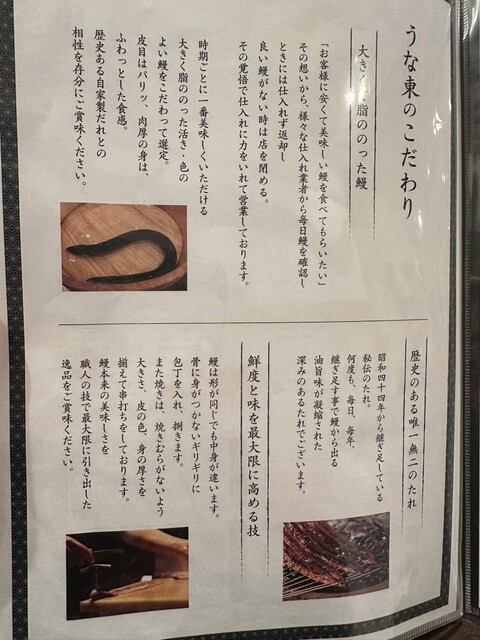 うな東のこだわり
大きく脂ののった鰻
「お客様に安くて美味しい鰻を食べてもらいたい」
その想いから、様々な仕入れ業者から毎日鰻を確認し
ときには仕入れず返却し
良い鰻がない時は店を閉める。
その覚悟で仕入れに力をいれて営業しております。
時期ごとに一番美味しくいただける
大きく脂ののった活き・色の
よい鰻をこだわって選定。
皮目はパリッ、肉厚の身は、
ふわっとした食感。
歴史ある自家製だれとの
相性を存分にご賞味ください。
歴史のある唯一無二のたれ
昭和四十四年から継ぎ足している
秘伝のたれ。
何度も、毎日、毎年、
継ぎ足す事で鰻から出る
油旨味が凝縮された
深みのあるたれでございます。
鮮度と味を最大限に高める技
鰻は形が同じでも中身が違います。
骨に身がつかないギリギリに
包丁を入れ、捌きます。
また焼きは、焼きむらがないよう
大きさ、皮の色、身の厚さを
揃えて串打ちをしております。
鰻本来の美味しさを
職人の技で最大限に引き出した
逸品をご賞味ください。